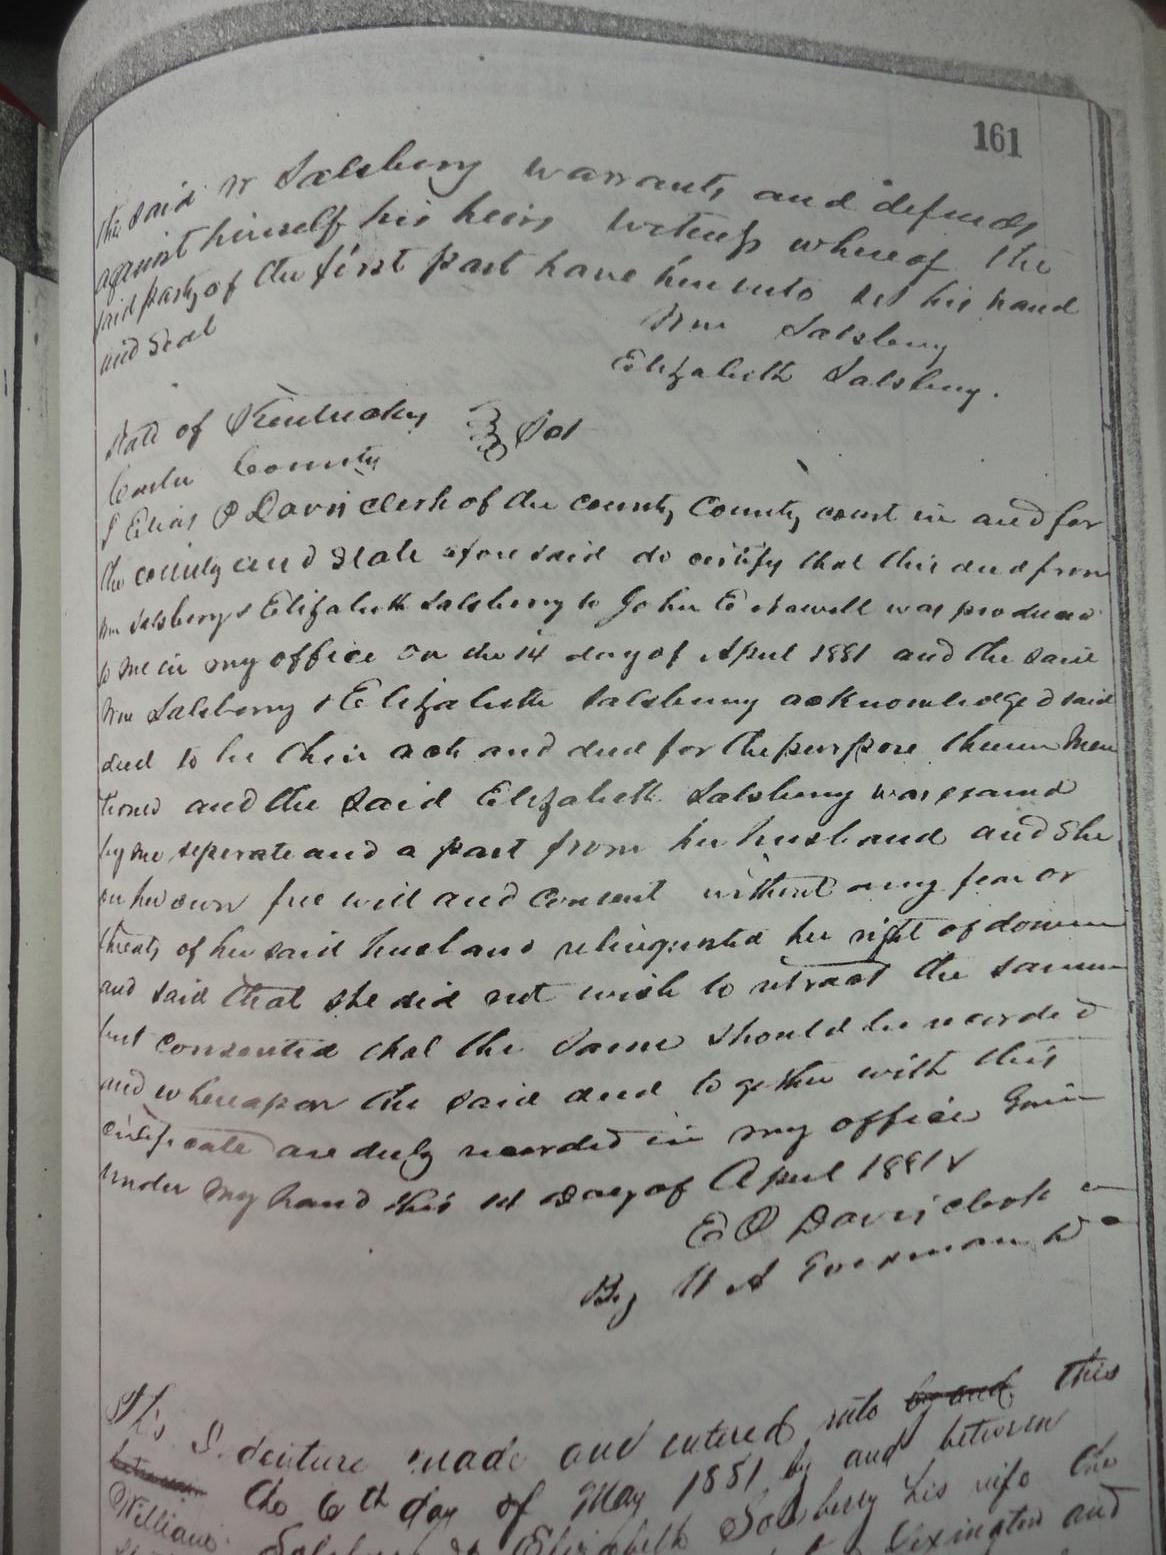 161
the said W Salsberry warrants and defends
against himself his heirs Witness whereof the
said party of the first part have hereunto set his hand
and seal
Wm Salsberry
Elizabeth Salsberry.
State of Kentucky
County Sct
I Elias P Davis clerk of the county County court in and for
the county and State afore said do certify that this deed from
Wm Salsberry & Elizabeth Salsberry to John E was produced
to me in my office on the 14 day of April 1881 and the said
Wm Salsberry & Elizabeth Salsberry acknowledged said
deed to be their act and deed for the purpose therein men
tioned and the said Elizabeth Salsberry was examd
by me seperate and a part from her husband and she
on her own free will and consent without any fear or
threats of her said husband relinquested her right of dower
and said that she did not wish to retract the same
but consented that the same should be recorded
and whereapon the said deed together with this
certificate are duly recorded in my office Given
under my hand this 1st Day of April 1881
E P Davis clerk
By
This Indenture made and entered into by and this
between the 6th day of May 1881 by and between
William Salsberry & Elizabeth Salsberry his wife the
Lexington and